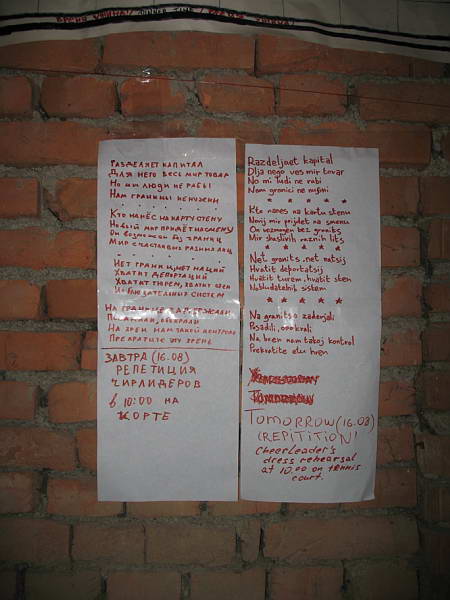 ВРЕМЯ УЖИНА! DINNER TIME!
РАЗДЕЛЯЕТ КАПИТАЛ
ДЛЯ НЕГО ВЕСЬ МИР ТОВАР
НО МЫ ЛЮДИ НЕ РАБЫ
НАМ ГРАНИЦЫ НЕ НУЖНЫ
КТО НАНЁС НА КАРТУ СТЕНУ
НОВЫЙ МИР ПРИДЁТ НА СМЕНУ
ОН ВОЗМОЖЕН БЕЗ ГРАНИЦ
МИР СЧАСТЛИВЫХ РАЗНЫХ ЛИЦ
НЕТ ГРАНИЦ, НЕТ НАЦИЙ
ХВАТИТ ДЕПОРТАЦИЙ
ХВАТИТ ТЮРЕМ, ХВАТИТ СТЕН
НАБЛЮДАТЕЛЬНЫХ СИСТЕМ
НА ГРАНИЦЕ ЗАДЕРЖАЛИ
НА ХРЕН НАМ ТАКОЙ КОНТРОЛЬ
ПРЕКРАТИТЕ ЭТУ ХРЕНЬ
ЗАВТРА (16.08)
РЕПЕТИЦИЯ
ЧИРЛИДЕРОВ
в 10:00 НА
КОРТЕ
Razdeljaet kapital
Dlja nego ves mir tovar
No mi ludi ne rabi
Nam granici ne nujni
* * * * *
Kto nanes na kartu stenu
Novij mir prijdet na smenu
On vozmojen bez granits
Mir shaslivih raznih lits
* * * * *
Net granits, net natsij
Hvatit deportatsij
Hvatit turem, hvatit sten
Nabludatelnij sistem
* * * * *
Na granitse zaderjali
Posadili, obokrali
Na hren nam takoj kontrol
Prekratite etu hren
TOMORROW
TOMORROW (16.08)
(REPITITION)
Cheerleader's
dress rehearsal
at 10.00 on tennis
court.